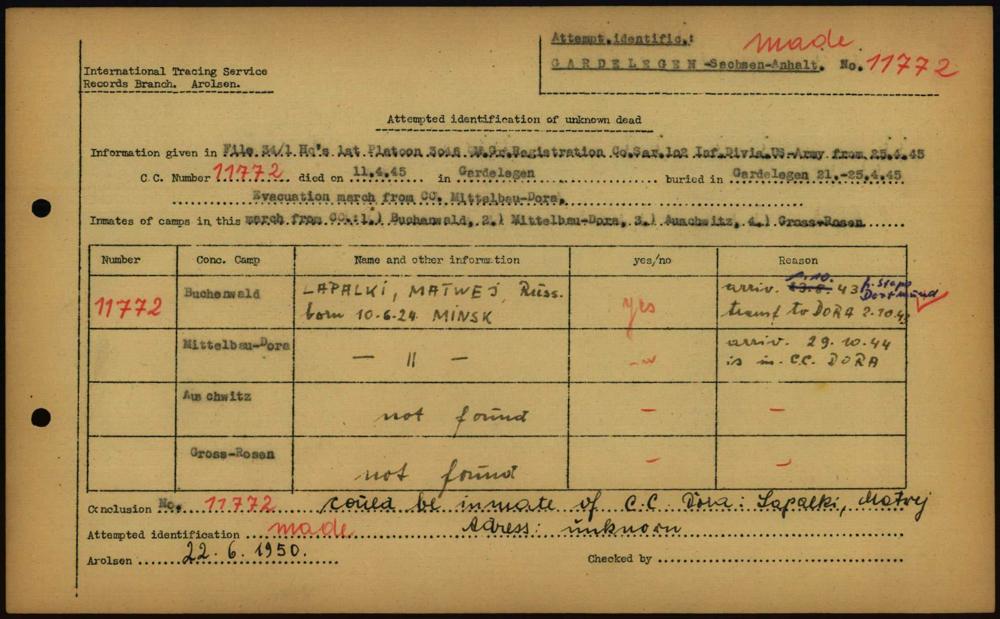 Attempt.identific.: made
GARDELEGEN-Sachsen-Anhalt. No. 11772
International Tracing Service
Records Branch. Arolsen.
Attempted identification of unknown dead
Information given in File 54/1 Hq's 1st Platoon 3046 Gr.Registration Co.Sax.102 Inf.Divis.US-Army from 25.4.45
C.C. Number 11772 died on 11.4.45 in Gardelegen buried in Gardelegen 21.-25.4.45
Evacuation march from CC. Mittelbau-Dora.
Inmates of camps in this march from CC.:1.) Buchenwald, 2.) Mittelbau-Dora, 3.) Auschwitz, 4.) Gross-Rosen
Number Conc. Camp Name and other information yes/no Reason
11772 Buchenwald LAPALKI, MATWEJ, Russ. born 10.6.24 MINSK yes arriv. 43 Stapo Dortmund transf to DORA 2.10.43
Mittelbau-Dora — " — -"- arriv. 29.10.44 is in C.C. DORA
Auschwitz not found - -
Gross-Rosen not found - -
Conclusion No. 11772 could be inmate of C.C. Dora: Lapalki, Matvej
Attempted identification made Adress: unknown
Arolsen 22.6.1950. Checked by